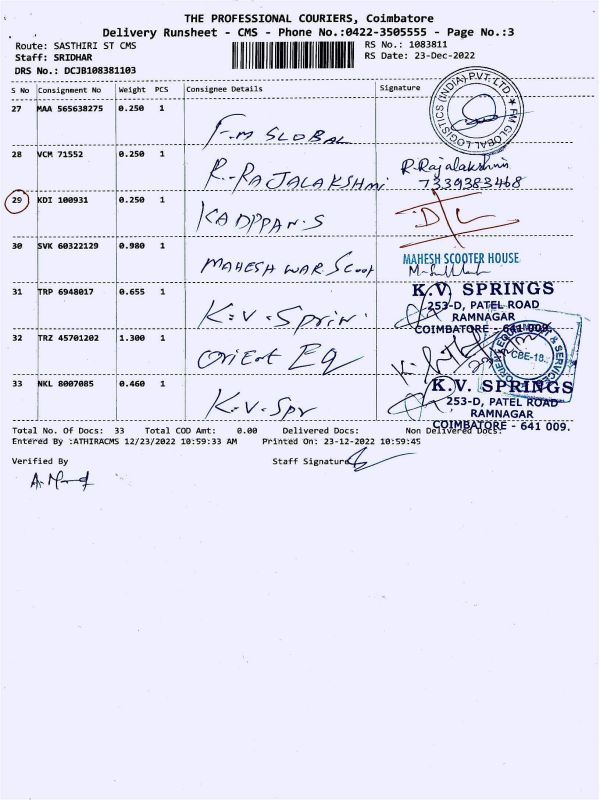 THE PROFESSIONAL COURIERS, Coimbatore
Delivery Runsheet - CMS - Phone No.:0422-3505555 - Page No.:3
Route: SASTHIRI ST CMS RS No.: 1083811
Staff: SRIDHAR RS Date: 23-Dec-2022
DRS No.: DCJB108381103
S No Consignment No Weight PCS Consignee Details Signature
27 MAA 565638275 0.250 1 F.M SLOBAL LOGISTICS (INDIA) PVT. LTD. ★ FM GLOBAL
28 VCM 71552 0.250 1 R.RAJALAKSHMI R.Rajalakshmi
7339383468
29 KDI 100931 0.250 1 KADPPAN.S D/L
30 SVK 60322129 0.980 1 MAHESH WAR Scoot MAHESH SCOOTER HOUSE
31 TRP 6948017 0.655 1 K.V.Sprin K.V. SPRINGS
253-D, PATEL ROAD
RAMNAGAR
COIMBATORE - 641 009.
32 TRZ 45701202 1.300 1 Orient Eq CBE-18.
33 NKL 8007085 0.460 1 K.V.Spr K.V. SPRINGS
253-D, PATEL ROAD
RAMNAGAR
COIMBATORE - 641 009.
Total No. Of Docs: 33 Total COD Amt: 0.00 Delivered Docs: Non Delivered Docs:
Entered By :ATHIRACMS 12/23/2022 10:59:33 AM Printed On: 23-12-2022 10:59:45
Verified By Staff Signature